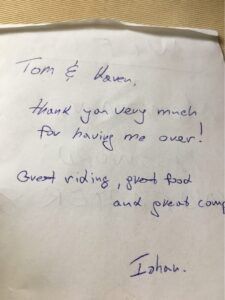 Tom & Karen,
thank you very much
for having me over!
Great riding, great food
and great comp